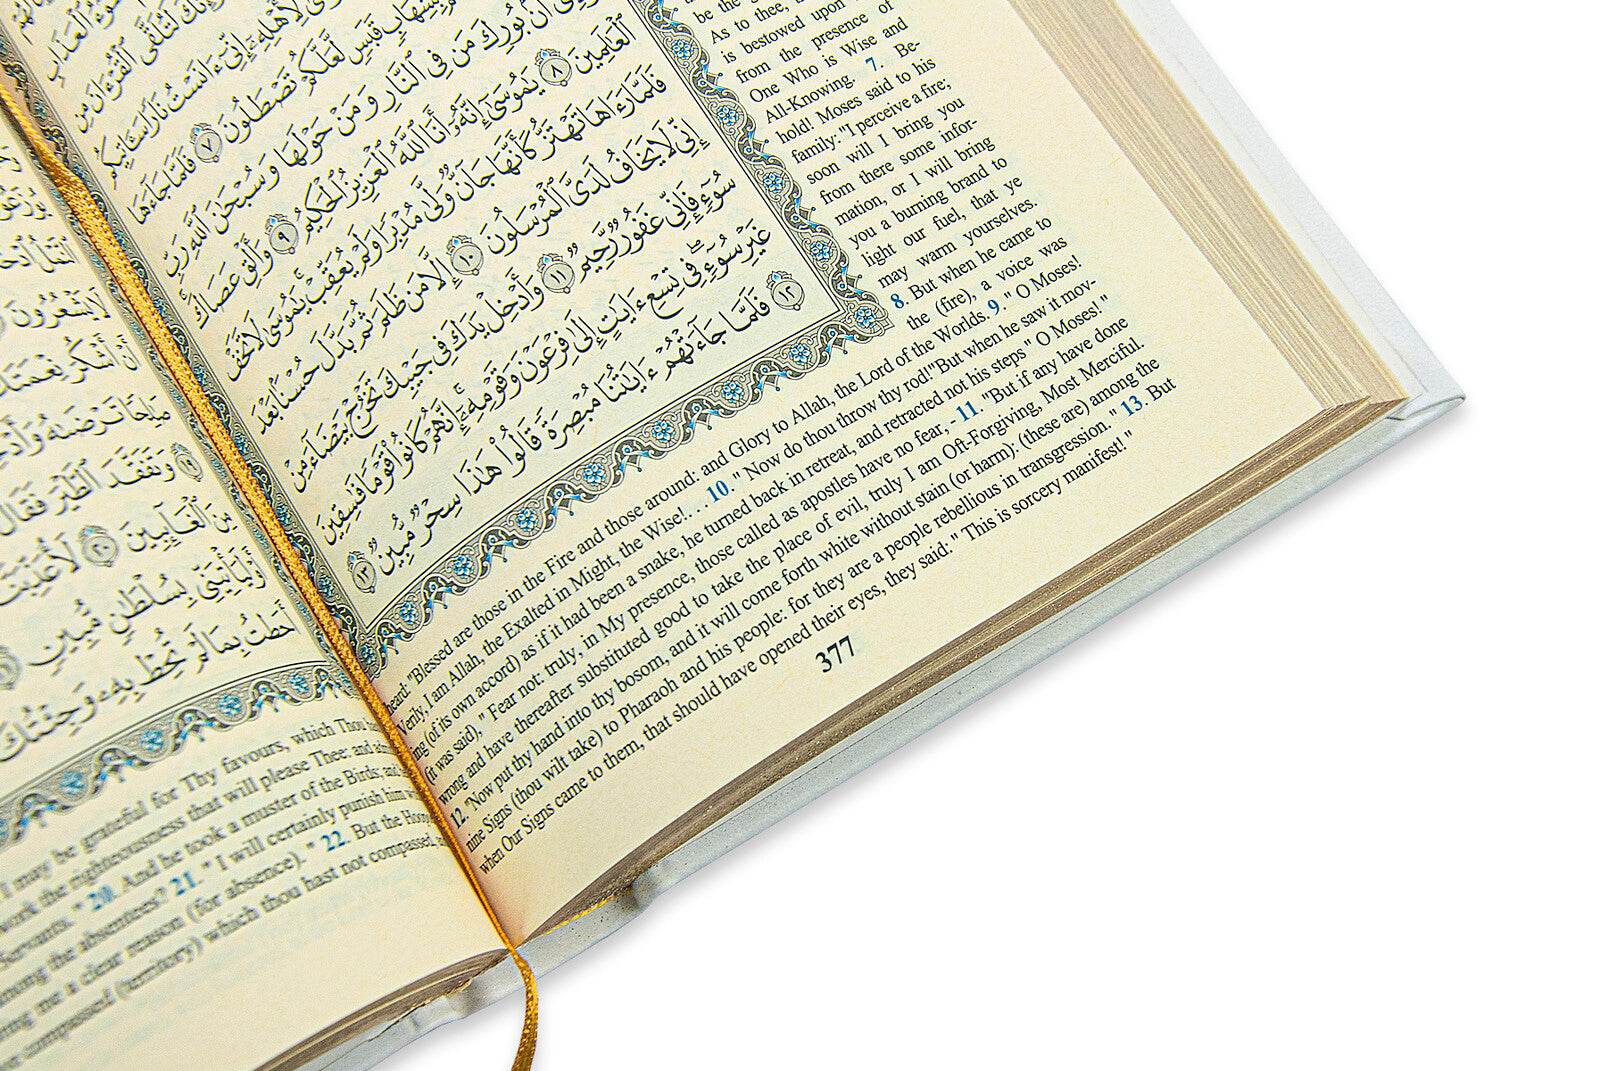 ٱلْقُرْءَانَ مِن
لِأَهْلِهِۦٓ إِنِّىٓ ءَانَسْتُ نَارًا سَـَٔاتِيكُم
بِشِهَابٍ قَبَسٍ لَّعَلَّكُمْ تَصْطَلُونَ ٧ فَلَمَّا جَآءَهَا
أَنۢ بُورِكَ مَن فِى ٱلنَّارِ وَمَنْ حَوْلَهَا وَسُبْحَٰنَ ٱللَّهِ رَبِّ
ٱلْعَٰلَمِينَ ٨ يَٰمُوسَىٰٓ إِنَّهُۥٓ أَنَا ٱللَّهُ ٱلْعَزِيزُ ٱلْحَكِيمُ ٩ وَأَلْقِ عَصَاكَ
فَلَمَّا رَءَاهَا تَهْتَزُّ كَأَنَّهَا جَآنٌّ وَلَّىٰ مُدْبِرًا وَلَمْ يُعَقِّبْ يَٰمُوسَىٰ لَا تَخَفْ
إِنِّى لَا يَخَافُ لَدَىَّ ٱلْمُرْسَلُونَ ١٠ إِلَّا مَن ظَلَمَ ثُمَّ بَدَّلَ حُسْنًۢا بَعْدَ
سُوٓءٍ فَإِنِّى غَفُورٌ رَّحِيمٌ ١١ وَأَدْخِلْ يَدَكَ فِى جَيْبِكَ تَخْرُجْ بَيْضَآءَ مِنْ
غَيْرِ سُوٓءٍ فِى تِسْعِ ءَايَٰتٍ إِلَىٰ فِرْعَوْنَ وَقَوْمِهِۦٓ إِنَّهُمْ كَانُوا۟ قَوْمًا فَٰسِقِينَ
١٢ فَلَمَّا جَآءَتْهُمْ ءَايَٰتُنَا مُبْصِرَةً قَالُوا۟ هَٰذَا سِحْرٌ مُّبِينٌ ١٣
be the
As to thee,
is bestowed upon
from the presence of
One Who is Wise and
All-Knowing. 7. Be-
hold! Moses said to his
family: "I perceive a fire;
soon will I bring you
from there some infor-
mation, or I will bring
you a burning brand to
light our fuel, that ye
may warm yourselves.
8. But when he came to
the (fire), a voice was
heard: "Blessed are those in the Fire and those around: and Glory to Allah, the Lord of the Worlds. 9. " O Moses!
Verily, I am Allah, the Exalted in Might, the Wise!. . . 10. " Now do thou throw thy rod!"But when he saw it mov-
ing (of its own accord) as if it had been a snake, he turned back in retreat, and retracted not his steps " O Moses! "
(it was said), " Fear not: truly, in My presence, those called as apostles have no fear, - 11. "But if any have done
wrong and have thereafter substituted good to take the place of evil, truly I am Oft-Forgiving, Most Merciful.
12. "Now put thy hand into thy bosom, and it will come forth white without stain (or harm): (these are) among the
nine Signs (thou wilt take) to Pharaoh and his people: for they are a people rebellious in transgression. " 13. But
when Our Signs came to them, that should have opened their eyes, they said: " This is sorcery manifest! "
377
لَا يَشْعُرُونَ
أَنْ أَشْكُرَ نِعْمَتَكَ
صَٰلِحًا تَرْضَىٰهُ وَأَدْ
١٩ وَتَفَقَّدَ ٱلطَّيْرَ فَقَالَ
مِنَ ٱلْغَآئِبِينَ ٢٠ لَأُعَذِّبَنَّ
أَوْ لَيَأْتِيَنِّى بِسُلْطَٰنٍ مُّبِينٍ
أَحَطتُ بِمَا لَمْ تُحِطْ بِهِۦ وَجِئْتُكَ
I may be grateful for Thy favours, which Thou
work the righteousness that will please Thee: and
Servants. " 20. And he took a muster of the Birds; and
among the absentees? 21. " I will certainly punish him
me a clear reason (for absence). " 22. But the
compassed (territory) which thou hast not compassed,